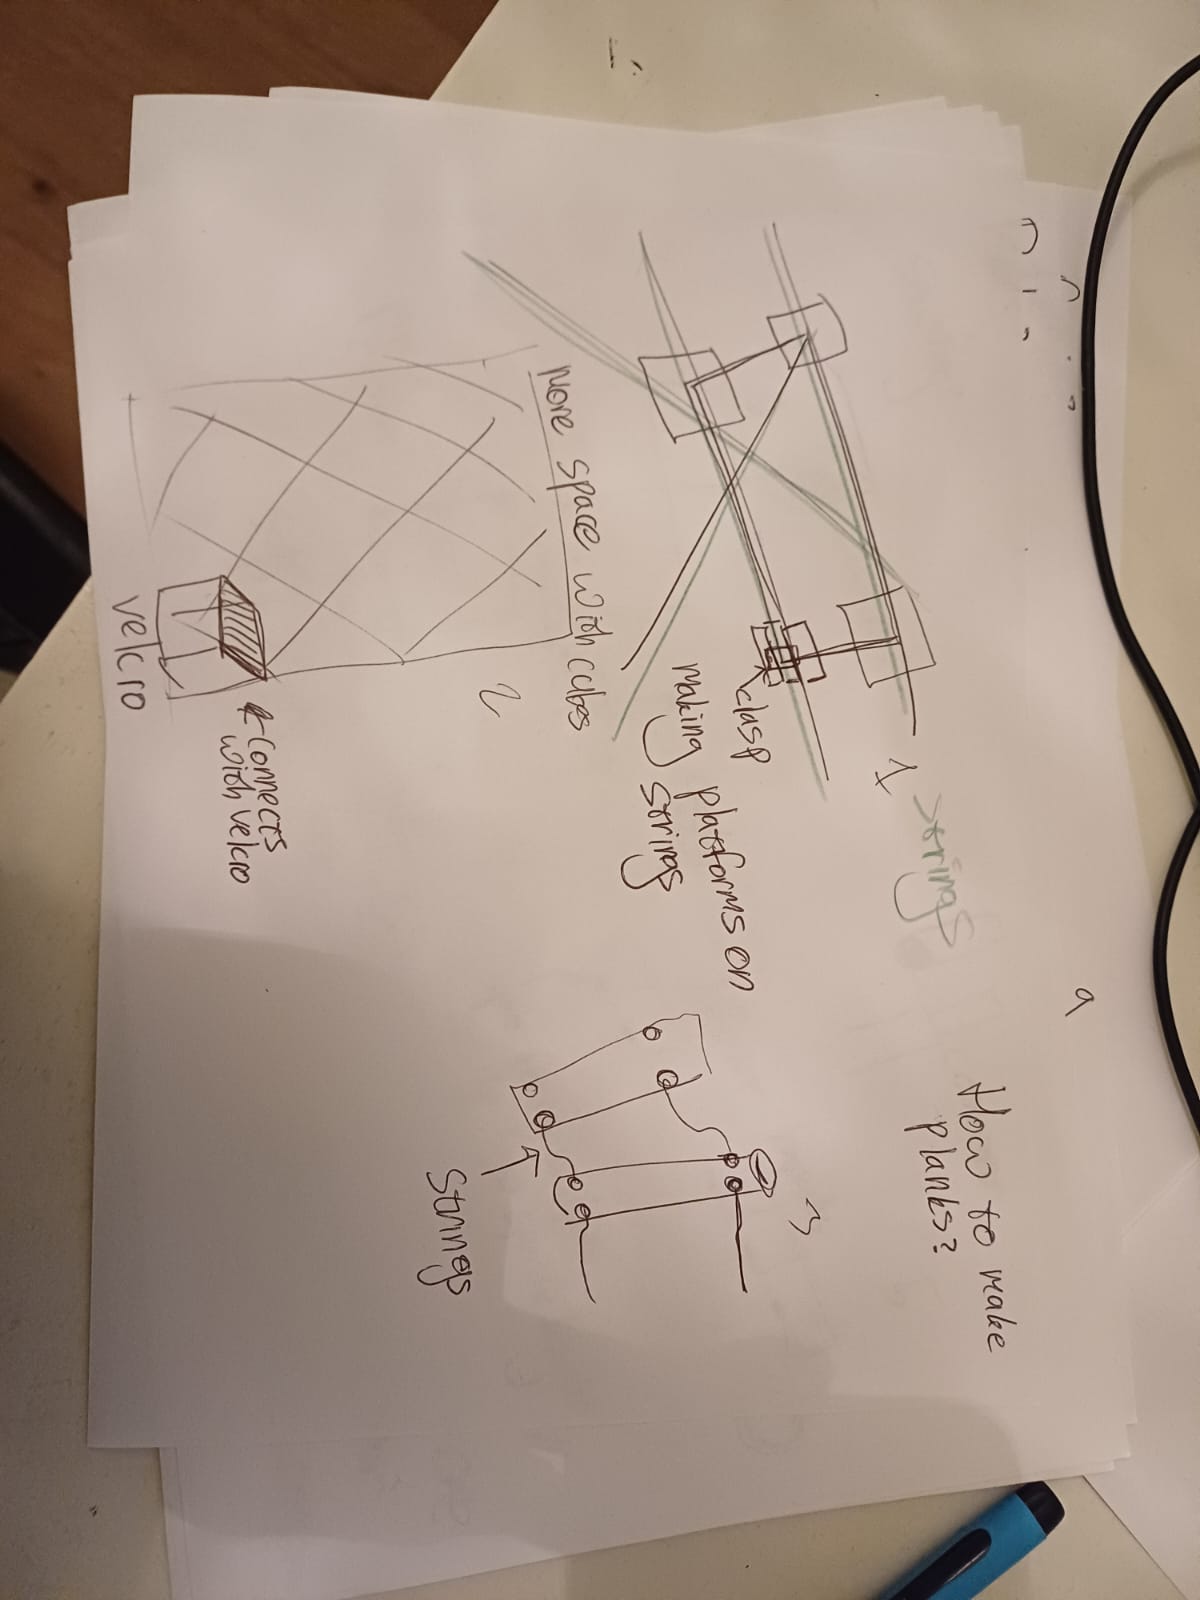 9
How to make
planks?
strings
1
clasp
making platforms on
strings
3
strings
More space with cubes
2
connects
with velcro
velcro